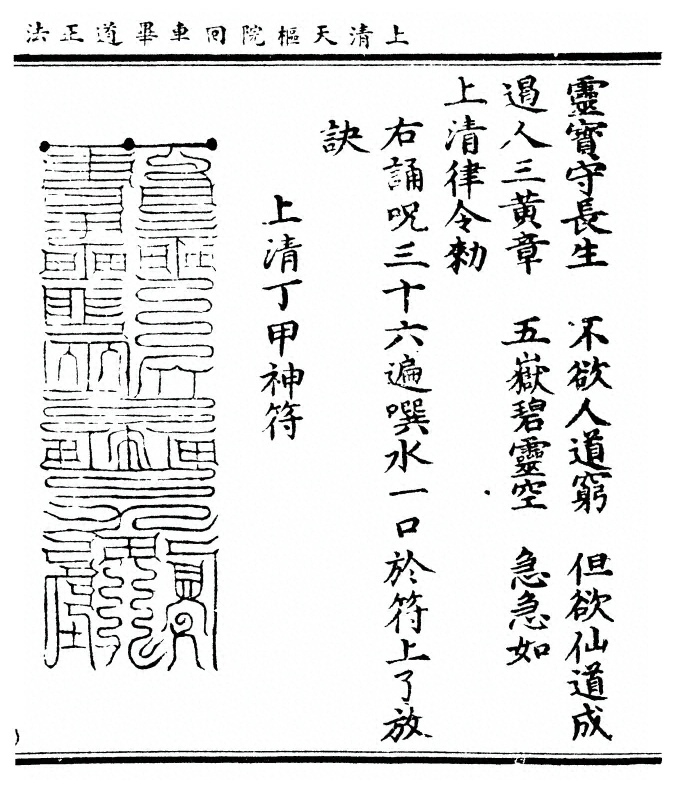 上清天樞院回車畢道正法
靈寶守長生　不欲人道窮　但欲仙道成
遏人三黃章　五嶽碧靈空　急急如
上清律令勑
右誦呪三十六遍噀水一口於符上了放
訣
上清丁甲神符